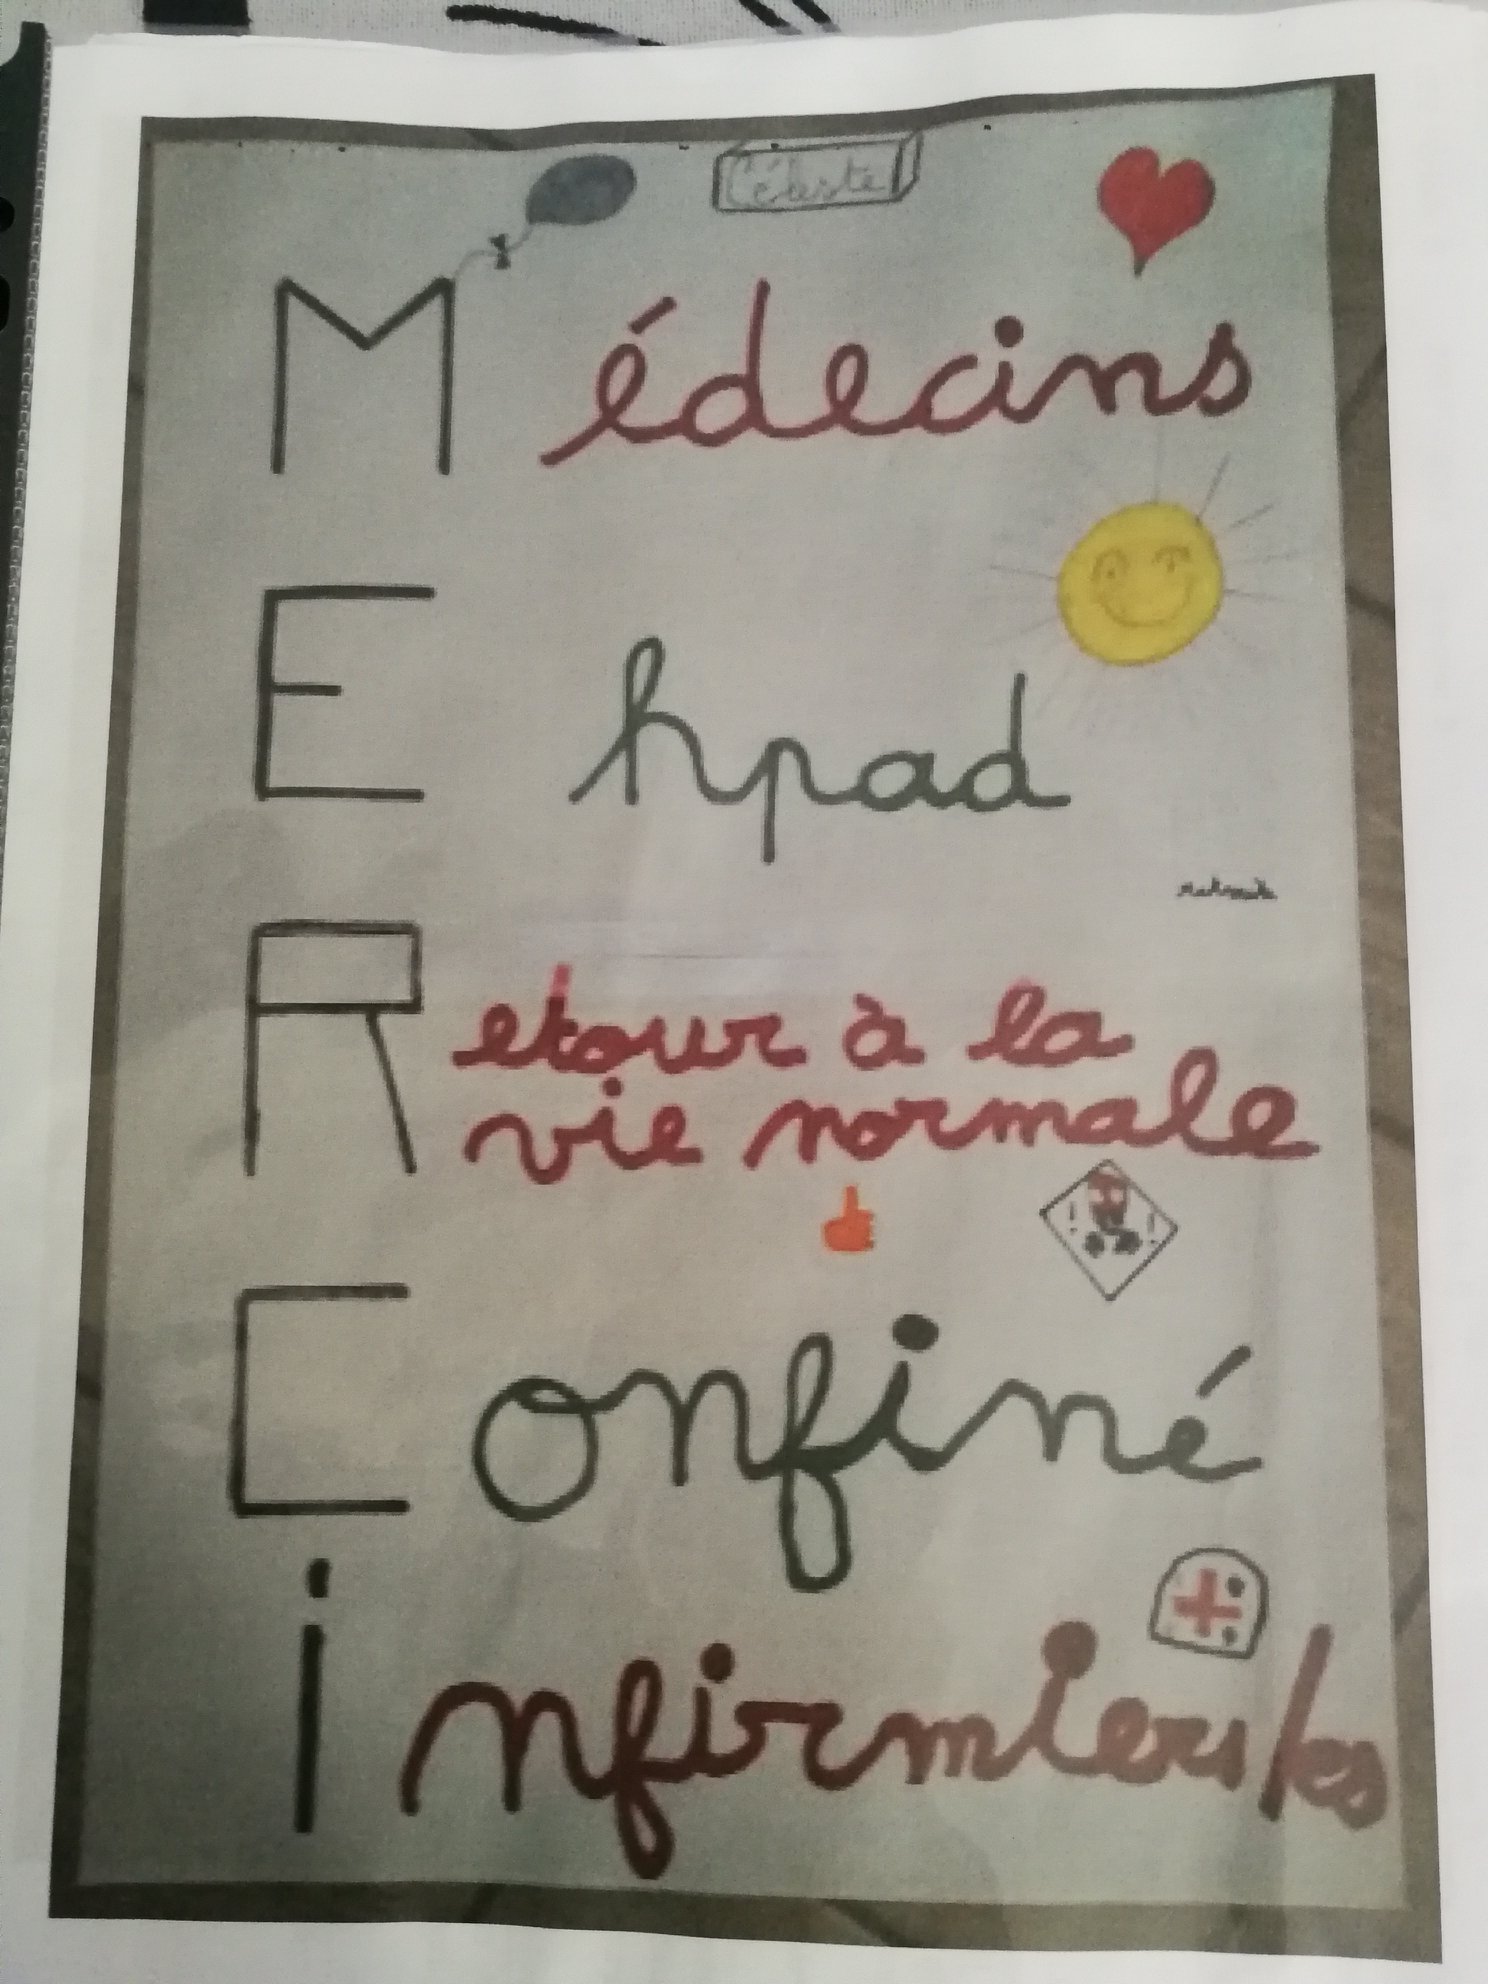 Céleste
Médecins
Ehpad
Retour à la
vie normale
! !
Confiné
infirmiers/es